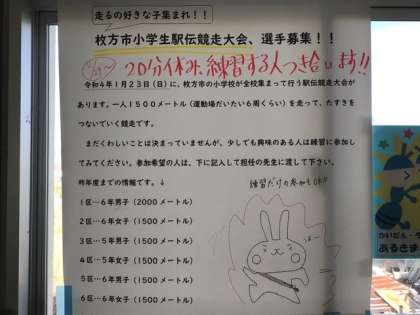 走るの好きな子集まれ！！
枚方市小学生駅伝競走大会、選手募集！！
20分休みに練習する人つき合います!!
令和４年１月２３日（日）に、枚方市の小学校が全校集まって行う駅伝競走大会が
あります。一人１５００メートル（運動場だいたい６周くらい）を走って、たすきを
つないでいく競走です。
まだくわしいことは決まっていませんが、少しでも興味のある人は練習に参加し
てみてください。参加希望の人は、下に記入して担任の先生に渡して下さい。
昨年度までの情報です。↓
練習だけの参加もOK!!
１区…６年男子（2000 メートル）
２区…６年女子（1500 メートル）
３区…５年男子（1500 メートル）
４区…５年女子（1500 メートル）
５区…６年男子（1500 メートル）
６区…６年女子（1500 メートル）
かいだん・
あるきま